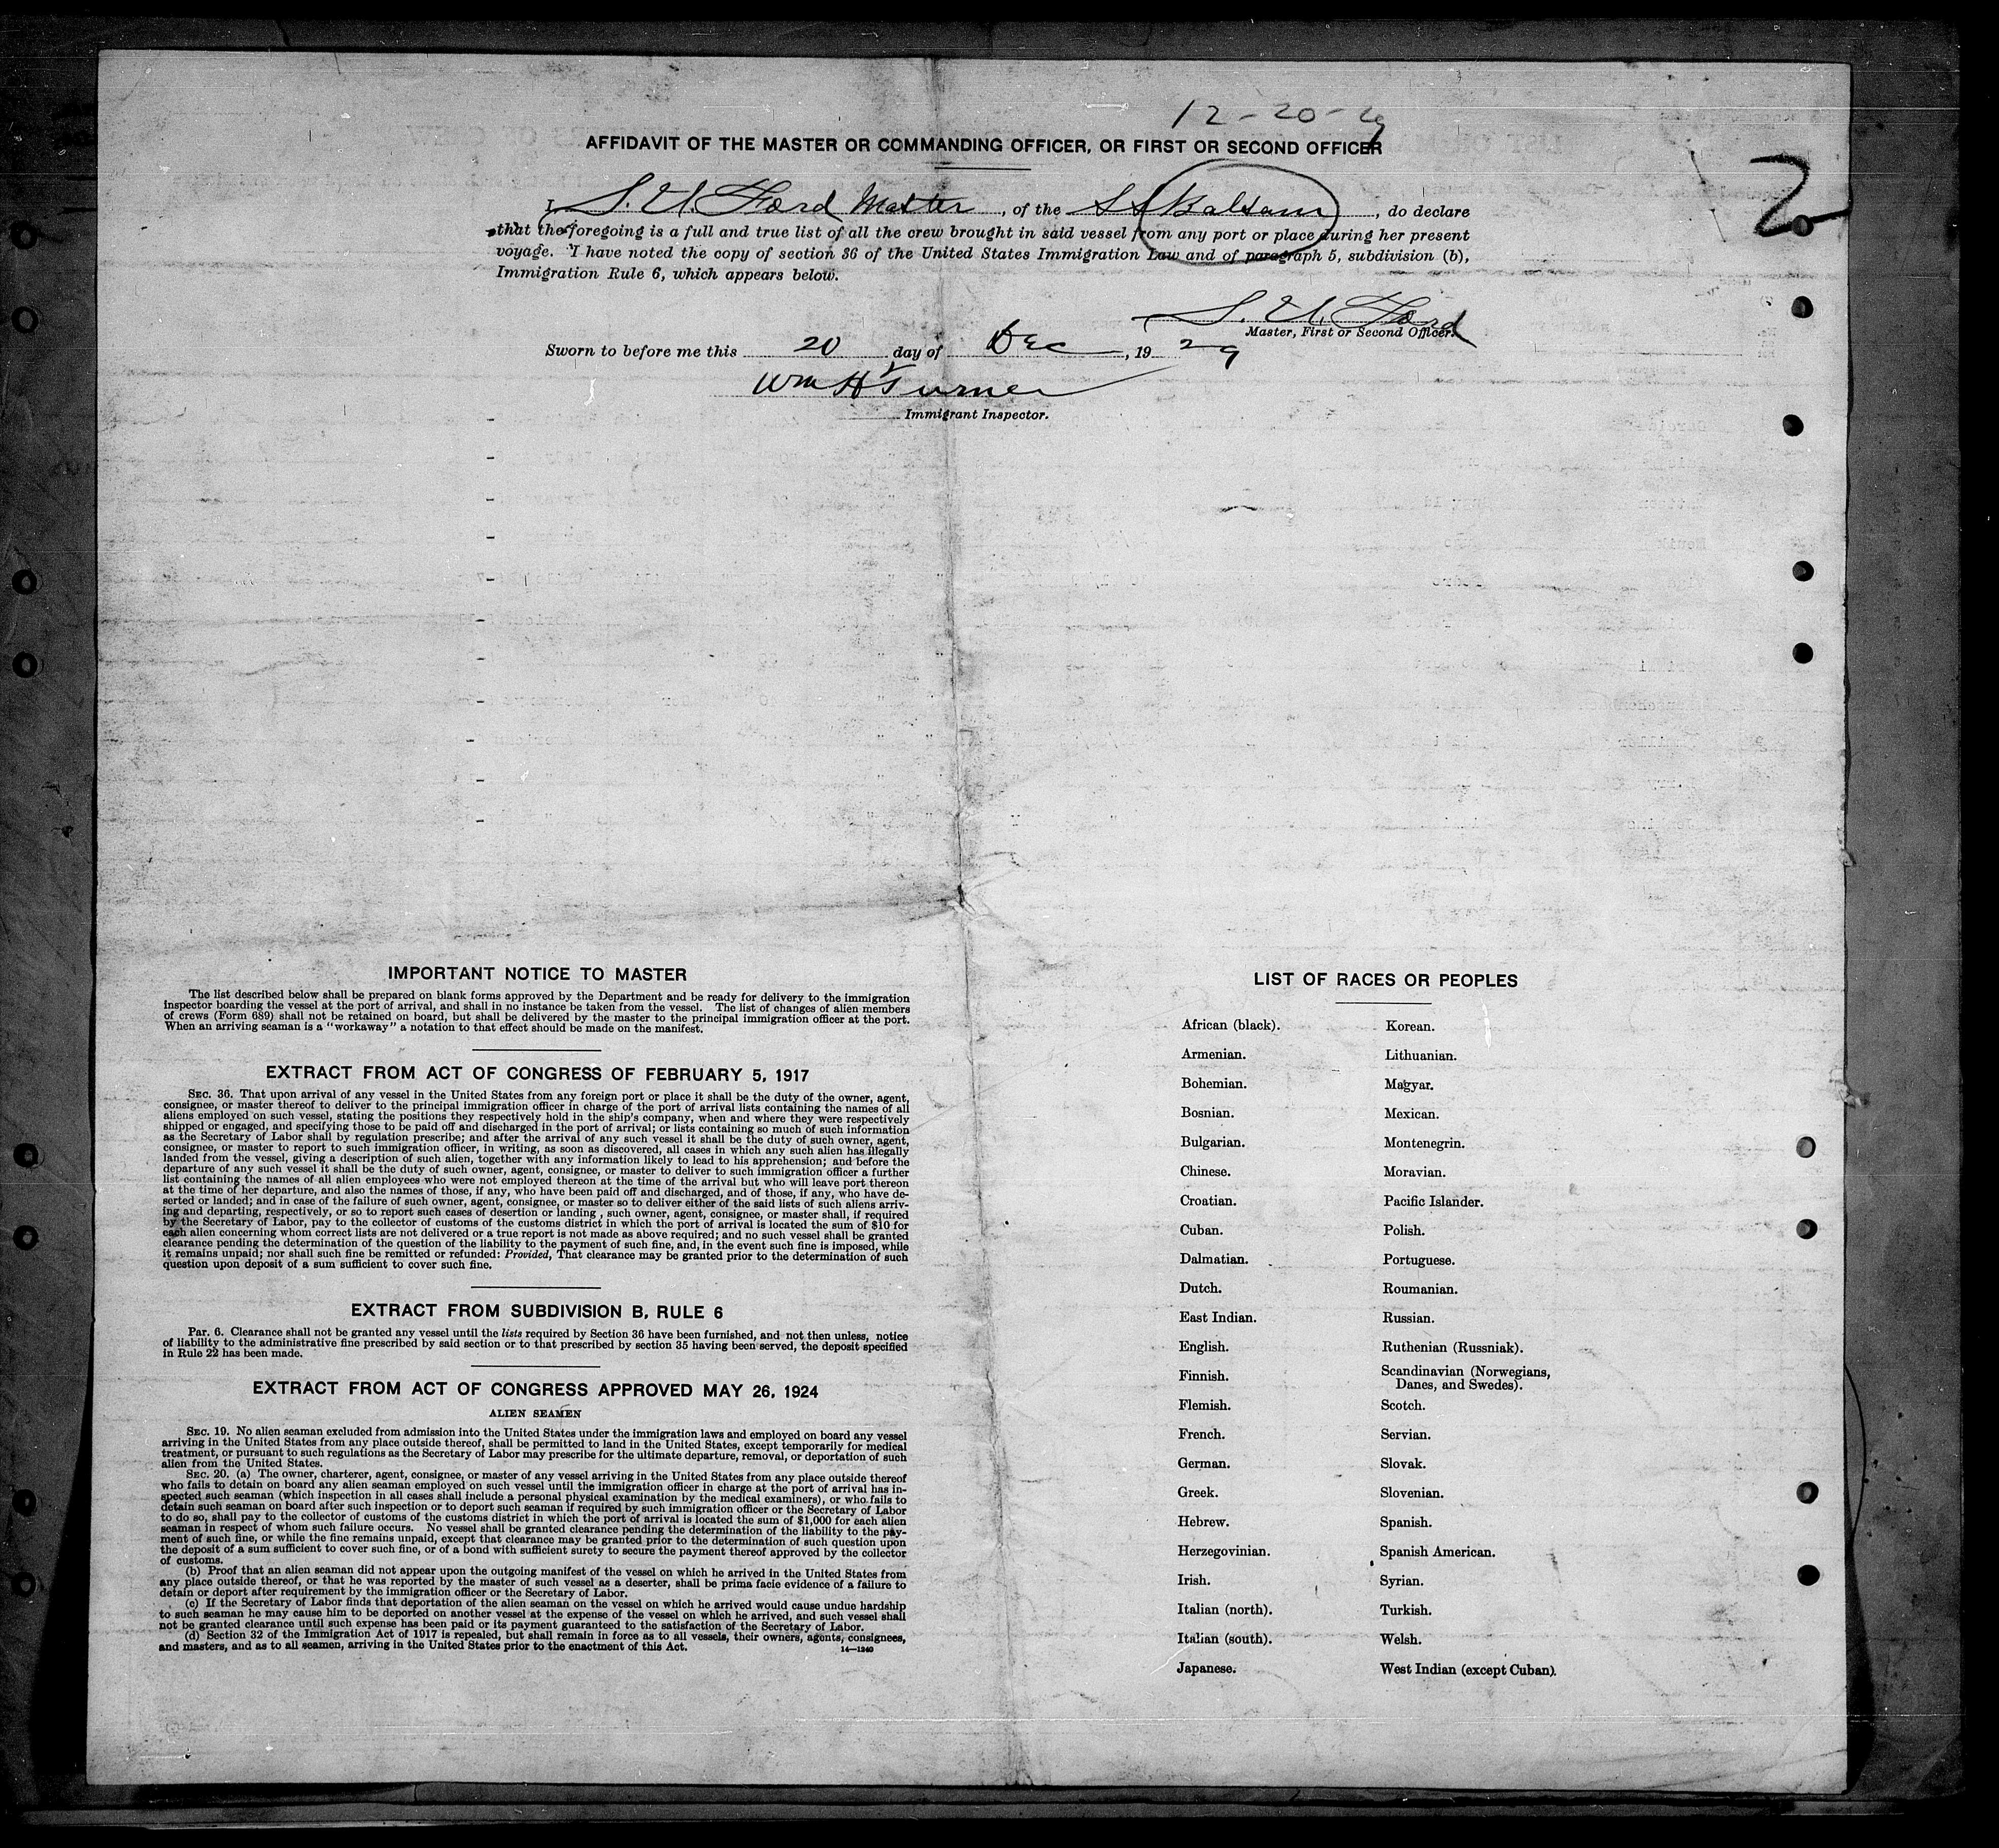 12-20-29
AFFIDAVIT OF THE MASTER OR COMMANDING OFFICER, OR FIRST OR SECOND OFFICER
2
I, S. U. Ford Master, of the SS Balsam, do declare
that the foregoing is a full and true list of all the crew brought in said vessel from any port or place during her present
voyage. I have noted the copy of section 36 of the United States Immigration Law and of paragraph 5, subdivision (b),
Immigration Rule 6, which appears below.
S. U. Ford
Master, First or Second Officer.
Sworn to before me this 20 day of Dec, 1929
Wm H Turner
Immigrant Inspector.
IMPORTANT NOTICE TO MASTER
The list described below shall be prepared on blank forms approved by the Department and be ready for delivery to the immigration
inspector boarding the vessel at the port of arrival, and shall in no instance be taken from the vessel. The list of changes of alien members
of crews (Form 689) shall not be retained on board, but shall be delivered by the master to the principal immigration officer at the port.
When an arriving seaman is a "workaway" a notation to that effect should be made on the manifest.
EXTRACT FROM ACT OF CONGRESS OF FEBRUARY 5, 1917
SEC. 36. That upon arrival of any vessel in the United States from any foreign port or place it shall be the duty of the owner, agent,
consignee, or master thereof to deliver to the principal immigration officer in charge of the port of arrival lists containing the names of all
aliens employed on such vessel, stating the positions they respectively hold in the ship's company, when and where they were respectively
shipped or engaged, and specifying those to be paid off and discharged in the port of arrival; or lists containing so much of such information
as the Secretary of Labor shall by regulation prescribe; and after the arrival of any such vessel it shall be the duty of such owner, agent,
consignee, or master to report to such immigration officer, in writing, as soon as discovered, all cases in which any such alien has illegally
landed from the vessel, giving a description of such alien, together with any information likely to lead to his apprehension; and before the
departure of any such vessel it shall be the duty of such owner, agent, consignee, or master to deliver to such immigration officer a further
list containing the names of all alien employees who were not employed thereon at the time of the arrival but who will leave port thereon
at the time of her departure, and also the names of those, if any, who have been paid off and discharged, and of those, if any, who have de-
serted or landed; and in case of the failure of such owner, agent, consignee, or master so to deliver either of the said lists of such aliens arriv-
ing and departing, respectively, or so to report such cases of desertion or landing, such owner, agent, consignee, or master shall, if required
by the Secretary of Labor, pay to the collector of customs of the customs district in which the port of arrival is located the sum of $10 for
each alien concerning whom correct lists are not delivered or a true report is not made as above required; and no such vessel shall be granted
clearance pending the determination of the question of the liability to the payment of such fine, and, in the event such fine is imposed, while
it remains unpaid; nor shall such fine be remitted or refunded: Provided, That clearance may be granted prior to the determination of such
question upon deposit of a sum sufficient to cover such fine.
EXTRACT FROM SUBDIVISION B, RULE 6
Par. 6. Clearance shall not be granted any vessel until the lists required by Section 36 have been furnished, and not then unless, notice
of liability to the administrative fine prescribed by said section or to that prescribed by section 35 having been served, the deposit specified
in Rule 22 has been made.
EXTRACT FROM ACT OF CONGRESS APPROVED MAY 26, 1924
ALIEN SEAMEN
SEC. 19. No alien seaman excluded from admission into the United States under the immigration laws and employed on board any vessel
arriving in the United States from any place outside thereof, shall be permitted to land in the United States, except temporarily for medical
treatment, or pursuant to such regulations as the Secretary of Labor may prescribe for the ultimate departure, removal, or deportation of such
alien from the United States.
SEC. 20. (a) The owner, charterer, agent, consignee, or master of any vessel arriving in the United States from any place outside thereof
who fails to detain on board any alien seaman employed on such vessel until the immigration officer in charge at the port of arrival has in-
spected such seaman (which inspection in all cases shall include a personal physical examination by the medical examiners), or who fails to
detain such seaman on board after such inspection or to deport such seaman if required by such immigration officer or the Secretary of Labor
to do so, shall pay to the collector of customs of the customs district in which the port of arrival is located the sum of $1,000 for each alien
seaman in respect of whom such failure occurs. No vessel shall be granted clearance pending the determination of the liability to the pay-
ment of such fine, or while the fine remains unpaid, except that clearance may be granted prior to the determination of such question upon
the deposit of a sum sufficient to cover such fine, or of a bond with sufficient surety to secure the payment thereof approved by the collector
of customs.
(b) Proof that an alien seaman did not appear upon the outgoing manifest of the vessel on which he arrived in the United States from
any place outside thereof, or that he was reported by the master of such vessel as a deserter, shall be prima facie evidence of a failure to
detain or deport after requirement by the immigration officer or the Secretary of Labor.
(c) If the Secretary of Labor finds that deportation of the alien seaman on the vessel on which he arrived would cause undue hardship
to such seaman he may cause him to be deported on another vessel at the expense of the vessel on which he arrived, and such vessel shall
not be granted clearance until such expense has been paid or its payment guaranteed to the satisfaction of the Secretary of Labor.
(d) Section 32 of the Immigration Act of 1917 is repealed, but shall remain in force as to all vessels, their owners, agents, consignees,
and masters, and as to all seamen, arriving in the United States prior to the enactment of this Act.
14—1240
LIST OF RACES OR PEOPLES
African (black).
Armenian.
Bohemian.
Bosnian.
Bulgarian.
Chinese.
Croatian.
Cuban.
Dalmatian.
Dutch.
East Indian.
English.
Finnish.
Flemish.
French.
German.
Greek.
Hebrew.
Herzegovinian.
Irish.
Italian (north).
Italian (south).
Japanese.
Korean.
Lithuanian.
Magyar.
Mexican.
Montenegrin.
Moravian.
Pacific Islander.
Polish.
Portuguese.
Roumanian.
Russian.
Ruthenian (Russniak).
Scandinavian (Norwegians,
Danes, and Swedes).
Scotch.
Servian.
Slovak.
Slovenian.
Spanish.
Spanish American.
Syrian.
Turkish.
Welsh.
West Indian (except Cuban).